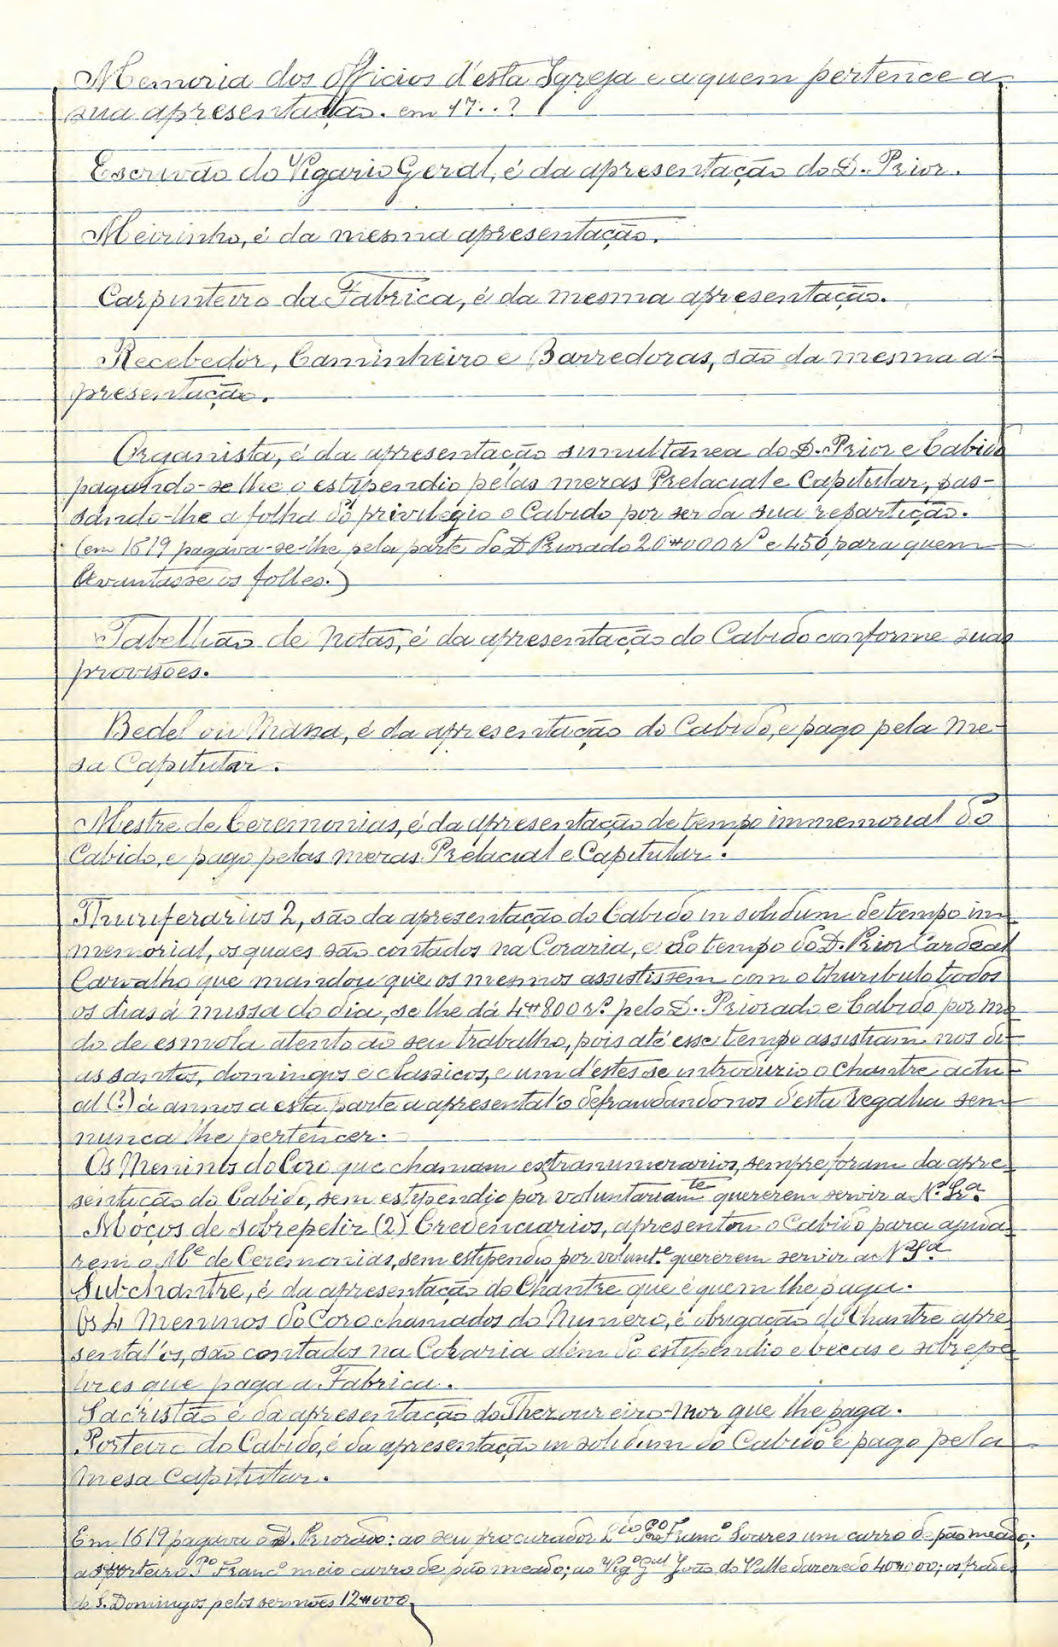 Memoria dos officios d'esta Igreja e a quem pertence a
sua apresentação. em 17..?
Escrivão do Vigario Geral, é da apresentação do D. Prior.
Meirinho, é da mesma apresentação.
Carpinteiro da Fabrica, é da mesma apresentação.
Recebedor, Caminheiro e Barredoras, são da mesma a-
presentação.
Organista, é da apresentação simultanea do D. Prior e Cabido
pagando-se lhe o estipendio pelas mezas Prelacial e Capitular, pas-
sando-lhe a folha do privilegio o Cabido por ser da sua repartição.
(em 1619 pagava-se-lhe pela parte do D. Priorado 20#000 rs e 450 para quem
levantasse os folles.)
Tabellião de Notas, é da apresentação do Cabido conforme suas
provisões.
Bedel ou Massa, é da apresentação do Cabido, e pago pela Me-
sa Capitular.
Mestre de Ceremonias, é da apresentação de tempo immemorial do
Cabido, e pago pelas mezas Prelacial e Capitular.
Thuriferarius 2, são da apresentação do Cabido in solidum de tempo im-
memorial, os quaes são contados na Coraria, e do tempo do D. Prior Cardeal
Carvalho que mandou que os mesmos assistissem com o thuribulo todos
os dias á missa do dia, se lhe dá 4#800 rs. pelo D. Priorado e Cabido por mo-
do de esmola atento ao seu trabalho, pois até esse tempo assistiam nos di-
as santos, domingos e classicos, e um d'estes se introduzio o Chantre actu-
al (?) á annos a esta parte a apresental'o defraudandonos d'esta regalia sem
nunca lhe pertencer.
Os Meninos do Coro que chamam extranumerarios, sempre foram da apre-
sentação do Cabido, sem estipendio por voluntariamte quererem servir a N. Sra.
Móços de sobrepeliz (2) Credenciarios, apresentou o Cabido para ajuda-
rem o Me de Ceremonias, sem estipendio por volunte quererem servir a N Sa
Subchantre, é da apresentação do Chantre que é quem lhe paga.
Os 4 Meninos do Coro chamados do Numero, é obrigação do Chantre apre-
sental'os, são contados na Coraria além do estipendio e becas e sobrepe-
lizes que paga a Fabrica.
Sacristão é da apresentação do Thezoureiro-Mor que lhe paga.
Porteiro do Cabido, é da apresentação in solidum do Cabido e pago pela
mesa Capitular.
Em 1619 pagava o D. Priorado: ao seu procurador Francº Soares um carro de pão meado;
ao porteiro Pº Francº meio carro de pão meado; ao Vigº Gal João do Valle 40#000; os frades
de S. Domingos pelos sermões 12#000